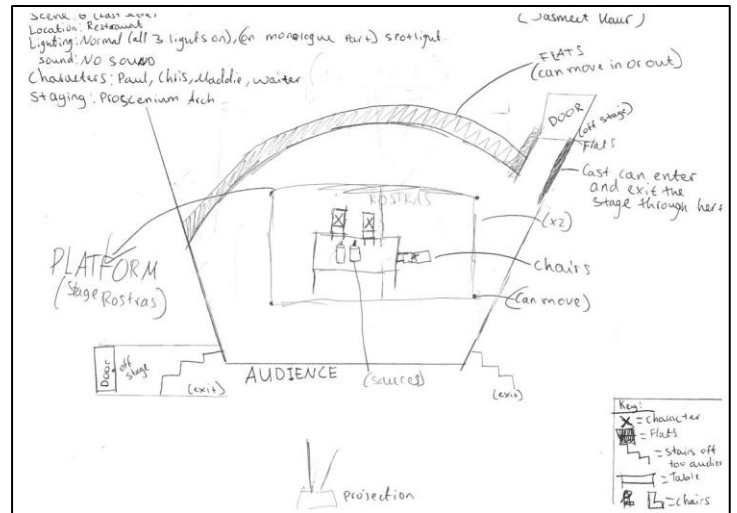 Scene: 6 (Last scene)
(Jasmeet Kaur)
Location: Restraunt
Lighting: Normal (all 3 lights on), (on monologue part) spotlight.
sound: NO SOUND
Characters: Paul, Chris, Maddie, Waiter
Staging: Proscenium Arch
FLATS
(can move in or out)
DOOR
(off stage)
Flats
Cast can enter
and exit the
stage through here
ROSTRAS
(x2)
chairs
(Can move)
PLATFORM
(Stage Rostras)
Door
off
stage
(exit)
AUDIENCE
(sauces)
(exit)
Projection
Key:
X = character
= Flats
= Stairs off
too audier
= Table
= chairs